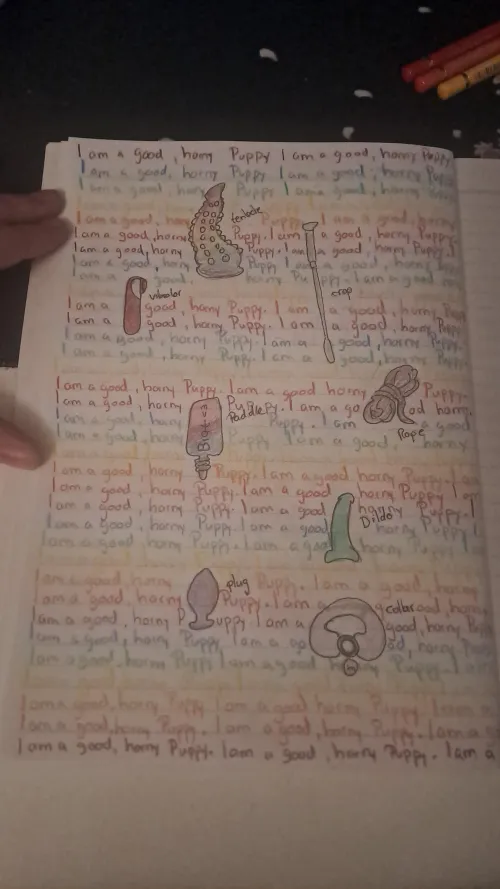 I am a good, horny Puppy I am a good, horny Puppy
I am a good, horny Puppy I am a good, horny Puppy
I am a good, horny Puppy I am a good, horny Puppy
tentacle
I am a good, horny Puppy. I am a good, horny
I am a good, horny Puppy. I am a good, horny Puppy.
I am a good, horny Puppy. I am a good, horny Puppy.
I am a good, horny Puppy. I am a good, horny
I am a good, horny Puppy. I am a good
vibrator
crop
I am a good, horny Puppy. I am a good, horny
I am a good, horny Puppy. I am a good, horny
I am a good, horny Puppy. I am a good, horny
I am a good, horny Puppy. I am a good, horny
I am a good, horny Puppy. I am a good horny Puppy.
I am a good, horny Puppy. I am a good horny
Paddle
Rope
I am a good, horny Puppy. I am a good
I am a good, horny Puppy I am a good, horny
I am a good, horny Puppy. I am a good, horny Puppy. I
I am a good, horny Puppy. I am a good horny Puppy. I
I am a good, horny Puppy. I am a good horny Puppy. I
Dildo
I am a good, horny Puppy. I am a good horny Puppy
I am a good, horny Puppy. I am a good horny Puppy
I am a good, horny Puppy. I am a good, horny
plug
I am a good, horny Puppy. I am a good horny
collar
I am a good, horny Puppy I am a good, horny
I am a good, horny Puppy. I am a good, horny Puppy
I am a good, horny Puppy I am a good, horny Puppy. I
I am a good, horny Puppy I am a good, horny Puppy. I am
I am a good, horny Puppy. I am a good, horny Puppy. I am a
I am a good, horny Puppy. I am a good, horny Puppy. I am a